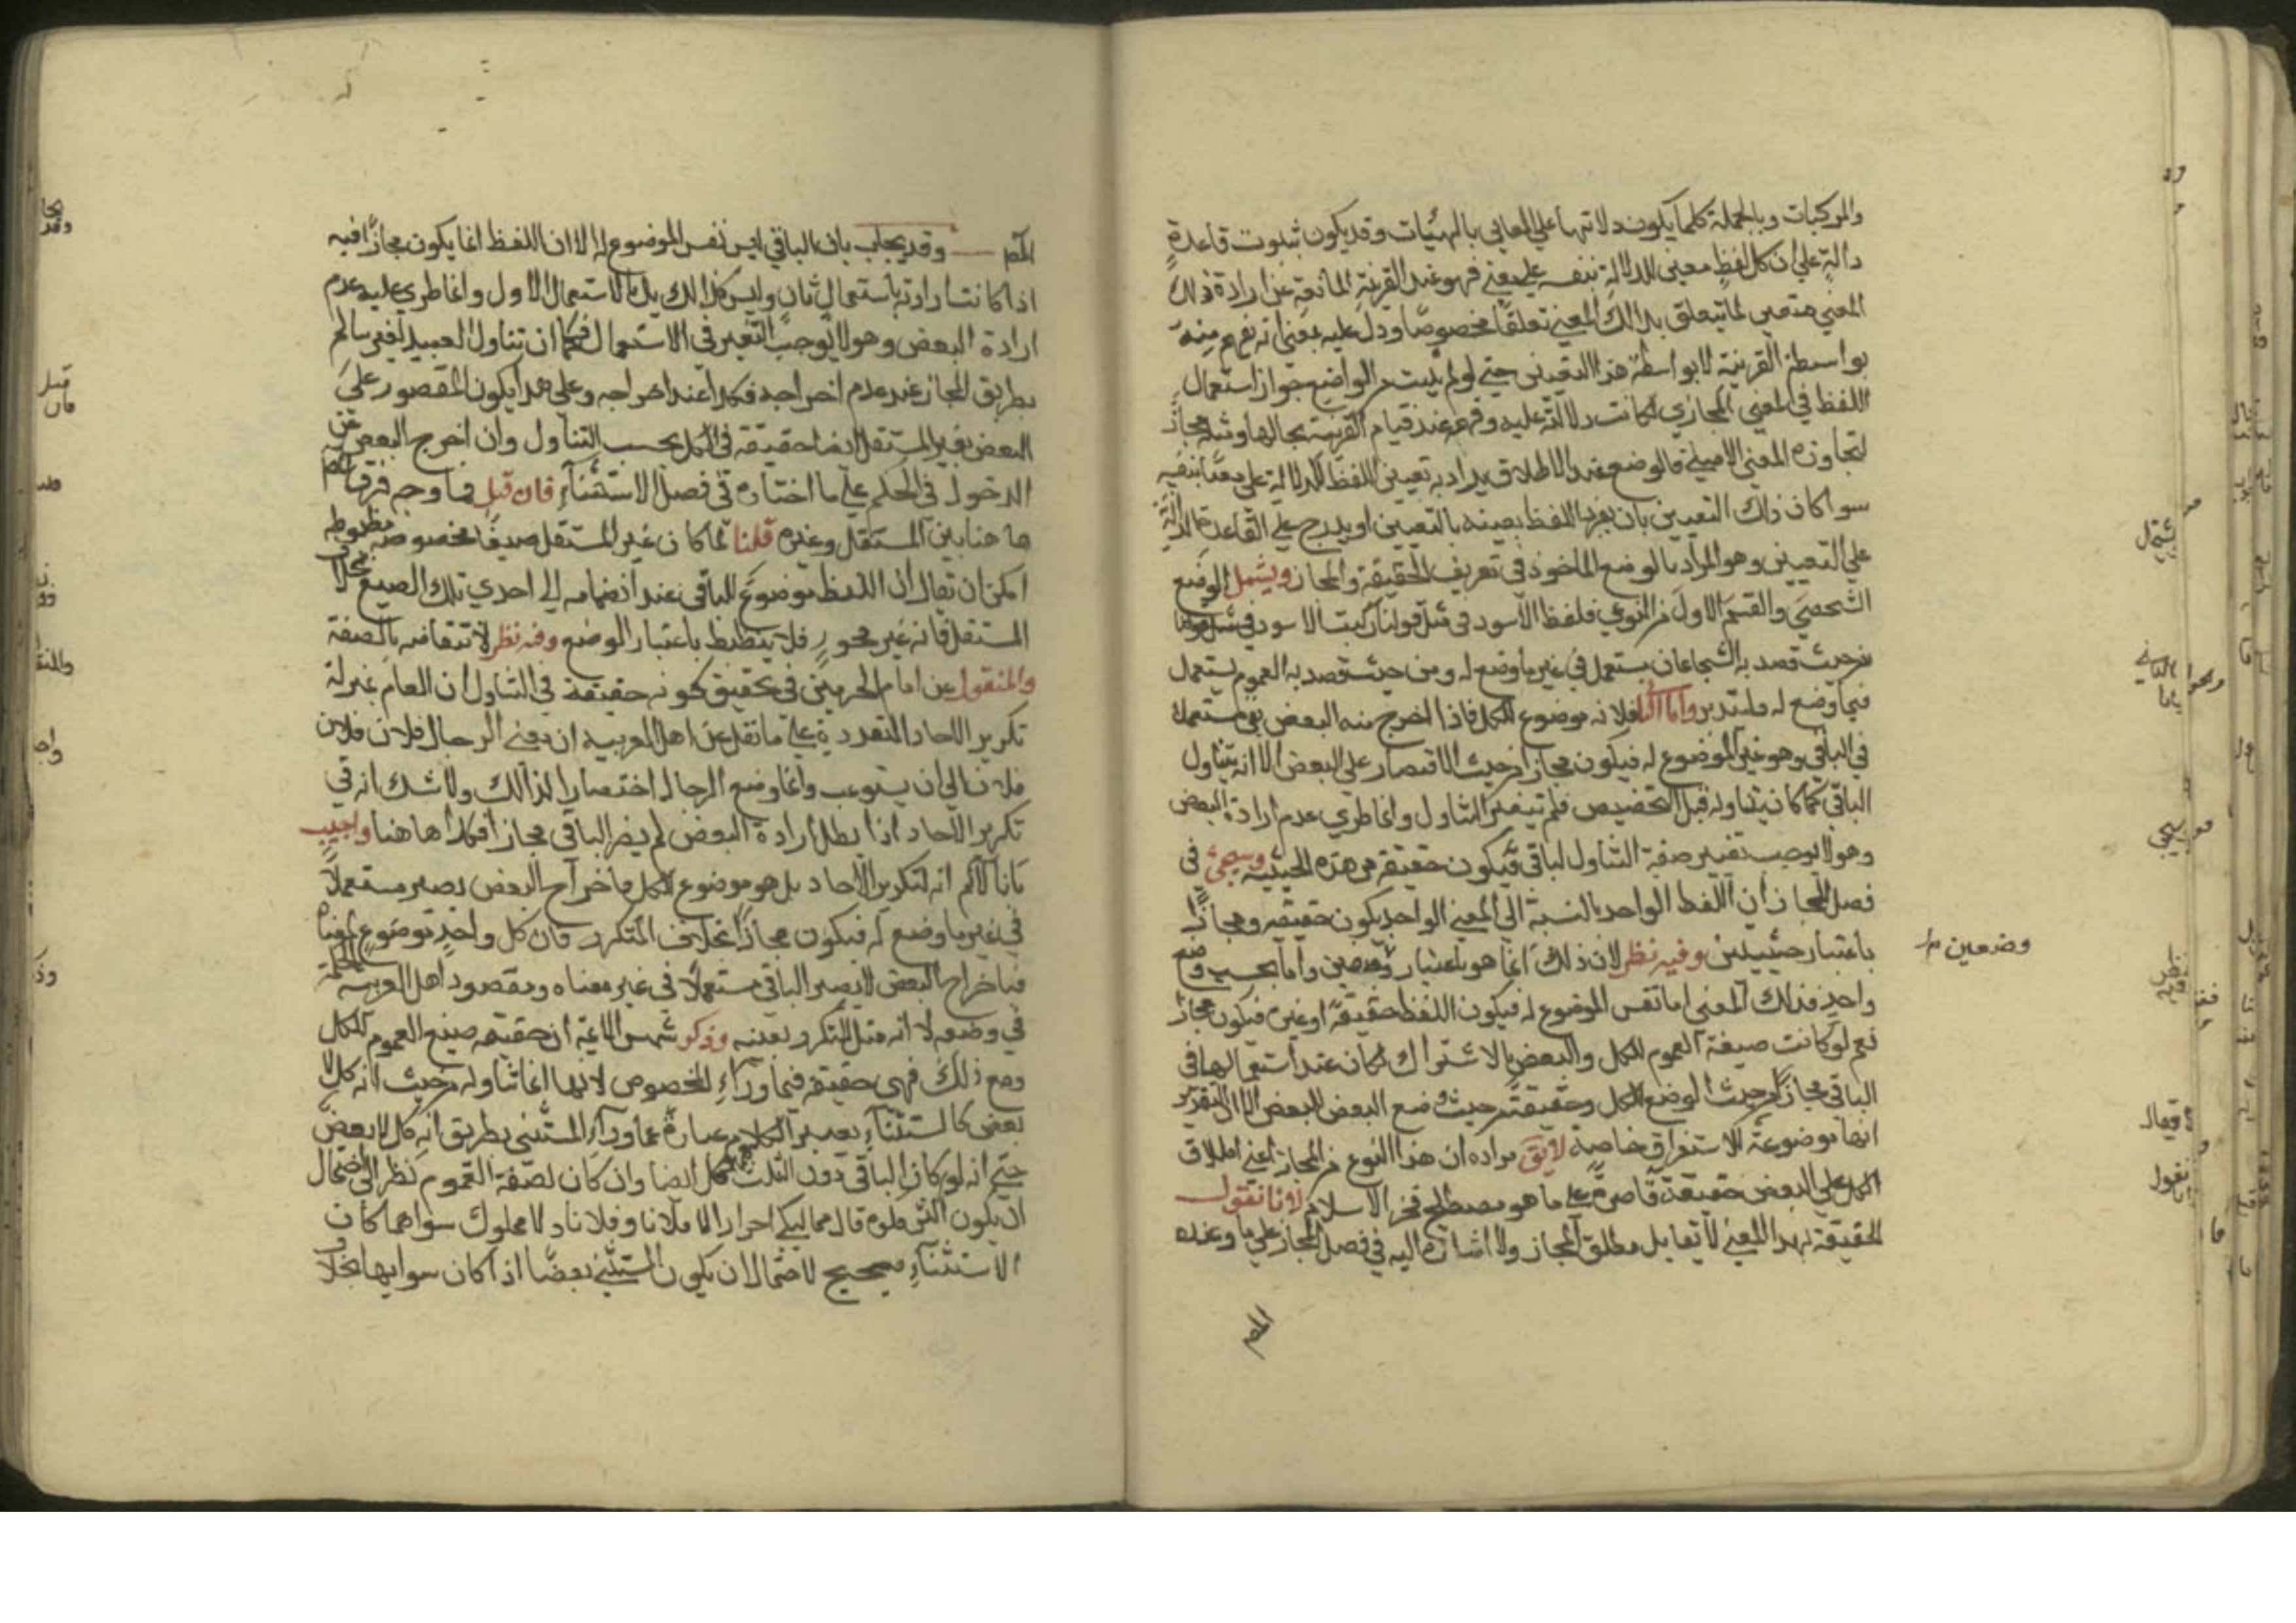 والمركبات وبالجملة كلما يكون دلالتها علي المعاني بالهيئات وقد يكون بثبوت قاعدة
دالة علي ان كل لفظ معين للدلالة بنفسه علي معني فهو عند القرينة المانعة عن ارادة ذلك
المعني متعين لما يتعلق بذالك المعني تعلقا مخصوصا ودل عليه بمعني انه يفهم منه
بواسطة القرينة لا بواسطة هذا التعيين حتي لو لم يثبت من الواضع جواز استعمال
اللفظ في المعني المجازي لكانت دلالته عليه وفهمه عند قيام القرينة بحالها ومثله مجاز
لتجاوزه المعني الاصلي فالوضع عند الاطلاق يراد به تعيين اللفظ للدلالة علي معنا بنفسه
سوا كان ذلك التعيين بان يفرد اللفظ بعينه بالتعيين او يدرج علي القاعدة الدالة
علي التعيين وهو المراد بالوضع الماخوذ في تعريف الحقيقة والمجاز ويشمل الوضع
الشخصي والقسم الاول من النوعي فلفظ الاسود في مثل قولنا ركبت الاسود
من حيث قصد به الشجاعان مستعمل في غير ما وضع له ومن حيث قصد به العموم يستعمل
فيما وضع له فليتدبر واما الثا فلانه موضوع للكل فاذا اخرج منه البعض بقي مستعملا
في الباقي وهو غير الموضوع له فيكون مجازا من حيث الاقتصار علي البعض الا انه يتناول
الباقي كما كان يتناوله قبل التخصيص فلم يتغير التناول وانما طري عدم ارادة البعض
وهو لا يوجب تغيير صفة التناول لباقي فيكون حقيقة من هذه الحيثية وسيجئ في
فصل المجاز ان اللفظ الواحد بالنسبة الي المعني الواحد يكون حقيقه ومجازا
باعتبار حيثيتين وفيه نظر لان ذلك انما هو باعتبار وضعين واما بحسب وضع
وضعين
واحد فذلك المعني اما نفس الموضوع له فيكون اللفظ حقيقة او غيره فيكون مجاز
نعم لو كانت صيغة العموم للكل والبعض بالاشتراك لكان عند استعمالها في
الباقي مجازا من حيث الوضع للكل وحقيقة من حيث وضع البعض للبعض الا ان التقدير
انها موضوعة للاستغراق خاصة لا يق مراده ان هذا النوع من المجاز اعني اطلاق
الكل علي البعض حقيقة قاصرة علي ما هو مصطلح فخر الاسلام لانا نقول
الحقيقة بهذا المعني لا تقابل مطلق المجاز ولا اشارة اليه في فصل المجاز علي ما وعده
المص
المص وقد يجاب بان الباقي ليس نفس الموضوع له الا ان اللفظ انما يكون مجازا فيه
اذا كانت ارادته باستعمال ثان وليس كذالك بل بالاستعمال الاول وانما طري عليه عدم
ارادة البعض وهو لا يوجب التغير في الاستعمال فكما ان تناول العبيد لغير سالم
بطريق المجاز عند عدم اخراجه فكذا عند اخراجه وعلي هذا يكون المقصور علي
البعض بغير المستقل ايضا حقيقة في الكل بحسب التناول وان اخرج البعض عن
الدخول في الحكم علي ما اختاره في فصل الاستثناء فان قيل فما وجه فرق المص
هاهنا بين المستقل وغيره قلنا لما كان غير المستقل صيغا مخصوصه مظبوطه
امكن ان تقال ان اللفظ موضوع للباقي عند انضمامه الي احدي تلك الصيغ بخلاف
المستقل فانه غير محصور فلا ينظبط باعتبار الوضع وفيه نظر لانتقاضه بالصفة
والمنقول عن امام الحرمين في تحقيق كونه حقيقة في التناول ان العام بمنزلة
تكرير الاحاد المتعددة علي ما نقل عن اهل العربيه ان معني الرجال فلان فلان
فلان الي ان يستوعب وانما وضع الرجال اختصارا لذالك ولا شك انه في
تكرير الاحاد اذا بطل ارادة البعض لم يصر الباقي مجازا فكذا هاهنا واجيب
بانا لانم انه لتكرير الاحاد بل هو موضوع للكل فاخراج البعض يصير مستعملا
في غير ما وضع له فيكون مجازا بخلاف المتكرر فان كل واحد موضوع لمعناه
فباخراج البعض لا يصير الباقي مستعملا في غير معناه ومقصود اهل العربيه الحكمة
في وضعه لا انه مثل المتكرر بعينه وذكر شمس الائمة ان حقيقه صيغ العموم للكل
ومع ذلك فهي حقيقة فيما وراء المخصوص لانها انما تناوله من حيث انه كل لا
بعض كالاستثناء يصير الكلام عبارة عما وراء المستثني بطريق انه كل لا بعض
حتي انه لو كان الباقي دون الثلث كل ايضا وان كان بصفة العموم نظرا الي احتمال
ان يكون اكثر فلو قال مماليكي احرار الا فلانا وفلانا ولا مملوك سواهما كان
الاستثناء صحيح لاحتمال ان يكون المستثني بعضا اذا كان سوايهما بخلاف